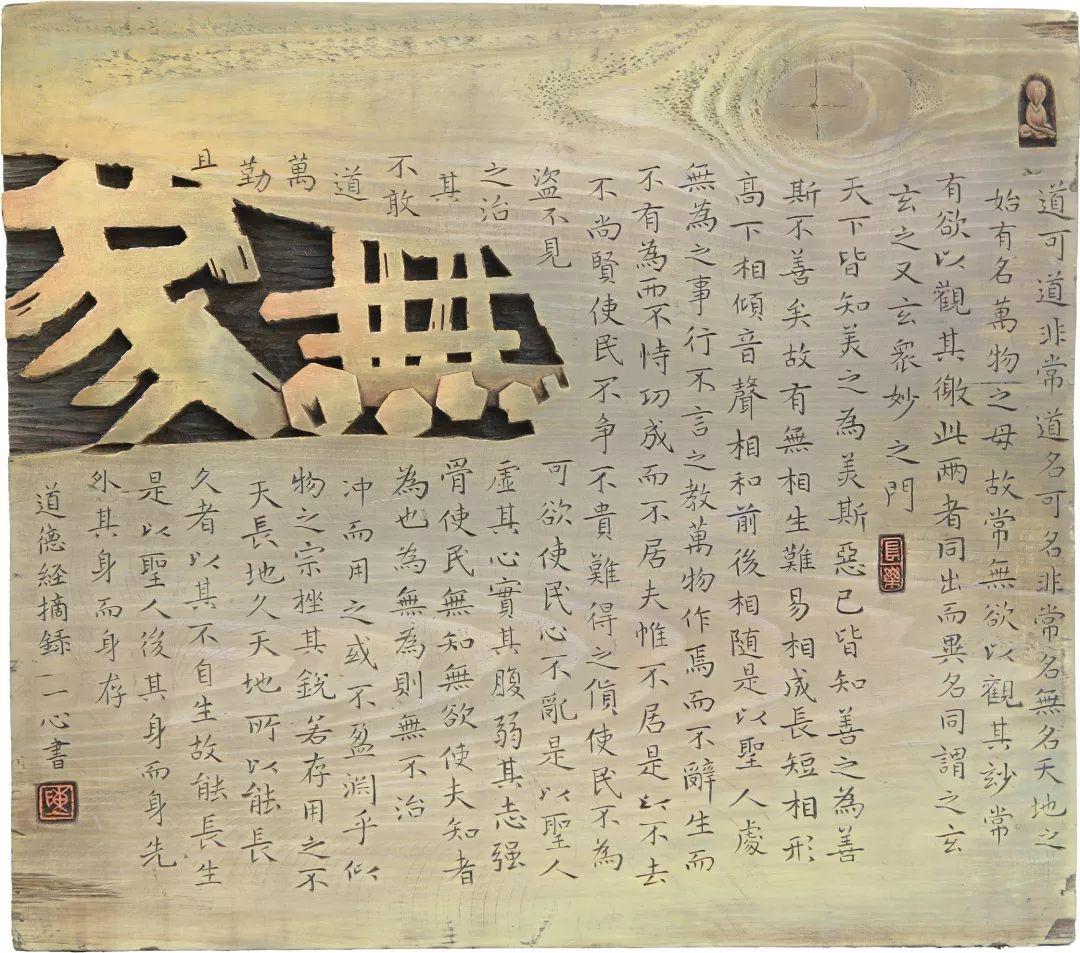 道可道非常道名可名非常名無名天地之
始有名萬物之母故常無欲以觀其玅常
有欲以觀其徼此两者同出而異名同謂之玄
玄之又玄衆妙之門
長樂
天下皆知美之為美斯惡已皆知善之為善
斯不善矣故有無相生難易相成長短相形
高下相傾音聲相和前後相随是以聖人處
無為之事行不言之教萬物作焉而不辭生而
不有為而不恃功成而不居夫惟不居是以不去
不尚賢使民不争不貴難得之貨使民不為
盜不見可欲使民心不亂是以聖人
之治虛其心實其腹弱其志强
其骨使民無知無欲使夫知者
不敢為也為無為則無不治
道冲而用之或不盈渊乎似
萬物之宗挫其銳若存用之不
勤天長地久天地所以能長
且久者以其不自生故能長生
是以聖人後其身而身先
外其身而身存
道德経摘録 一心書
無象